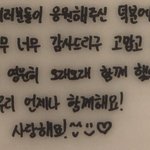 여러분들이 응원해주신 덕분에
무 너무 감사드리구 고맙고
영원히 오래오래 함께 했
우리 언제나 함께해요!
사랑해요! ^^ ♡